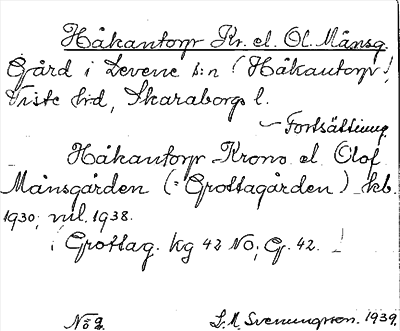 Håkantorp Kr. el. Ol. Månsg.
Gård i Levene s:n (Håkantorp),
Viste hd, Skaraborgs l.
— Fortsättning.
Håkantorp Krono el. Olof
Månsgården (: Grottagården) kb.
1930, vål. 1938.
i Grottag. kg 42 NO; G. 42.
Nög. S. M. Svenungsson. 1939.